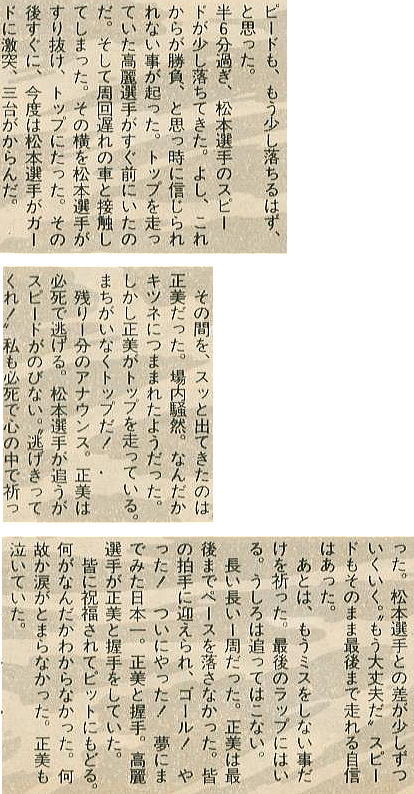 ピードも、もう少し落ちるはず、
と思った。
半６分過ぎ、松本選手のスピー
ドが少し落ちてきた。よし、これ
からが勝負、と思っ時に信じられ
れない事が起った。トップを走っ
ていた高麗選手がすぐ前にいたの
だ。そして周回遅れの車と接触し
てしまった。その横を松本選手が
すり抜け、トップにたった。その
後すぐに、今度は松本選手がガー
ドに激突、三台がからんだ。
その間を、スッと出てきたのは
正美だった。場内騒然。なんだか
キツネにつままれたようだった。
しかし正美がトップを走っている。
まちがいなくトップだ！
残り１分のアナウンス。正美は
必死で逃げる。松本選手が追うが
スピードがのびない。〝逃げきって
くれ！〟私も必死で心の中で祈っ
った。松本選手との差が少しずつ
いくいく。〝もう大丈夫だ〟スピー
ドもそのまま最後まで走れる自信
はあった。
あとは、もうミスをしない事だ
けを祈った。最後のラップにはい
る。うしろは追ってはこない。
長い長い一周だった。正美は最
後までペースを落さなかった。皆
の拍手に迎えられ、ゴール！　や
った！　ついにやった！　夢にま
でみた日本一。正美と握手。高麗
選手が正美と握手をしていた。
皆に祝福されてピットにもどる。
何がなんだかわからなかった。何
故か涙がとまらなかった。正美も
泣いていた。